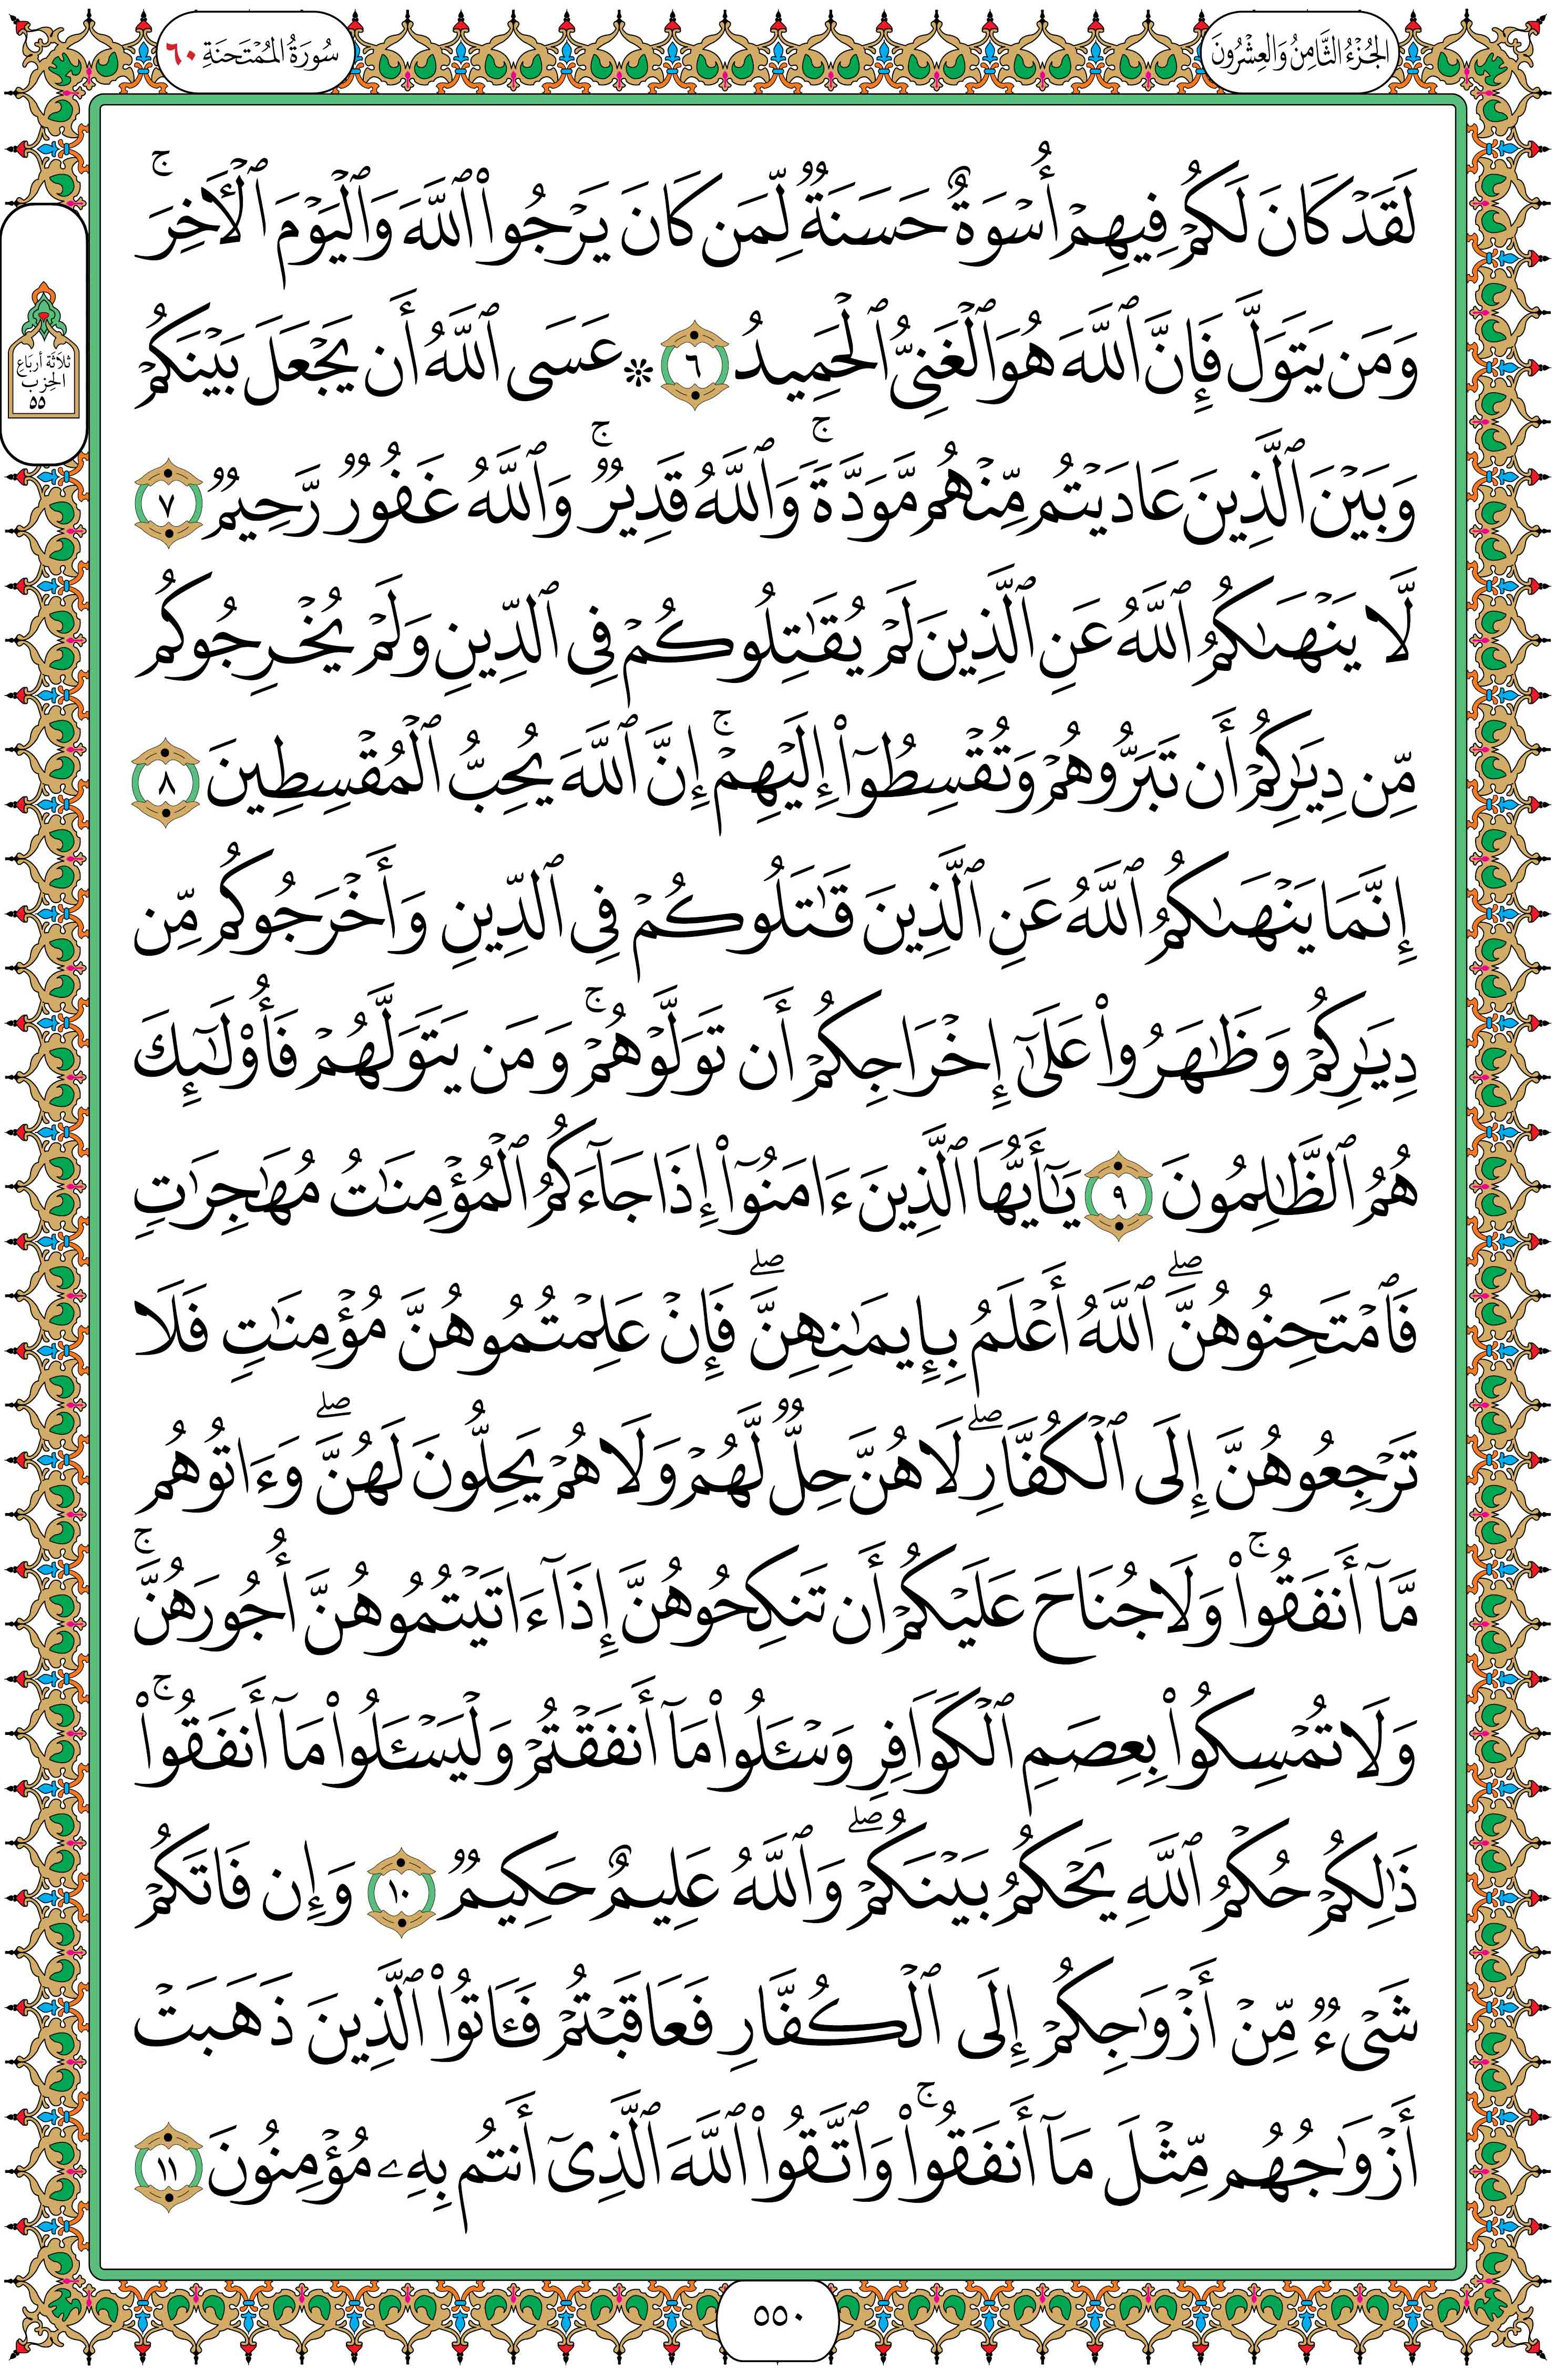 الجُزْءُ الثَّامِنُ وَالعِشْرُونَ
سُورَةُ المُمْتَحنَةِ ٦٠
لَقَدۡ كَانَ لَكُمۡ فِيهِمۡ أُسۡوَةٌ حَسَنَةٞ لِّمَن كَانَ يَرۡجُواْ ٱللَّهَ وَٱلۡيَوۡمَ ٱلۡأٓخِرَۚ
وَمَن يَتَوَلَّ فَإِنَّ ٱللَّهَ هُوَ ٱلۡغَنِيُّ ٱلۡحَمِيدُ ٦ ۞ عَسَى ٱللَّهُ أَن يَجۡعَلَ بَيۡنَكُمۡ
ثلاثة أرباع
الحزب
٥٥
وَبَيۡنَ ٱلَّذِينَ عَادَيۡتُم مِّنۡهُم مَّوَدَّةٗۚ وَٱللَّهُ قَدِيرٞۚ وَٱللَّهُ غَفُورٞ رَّحِيمٞ ٧
لَّا يَنۡهَىٰكُمُ ٱللَّهُ عَنِ ٱلَّذِينَ لَمۡ يُقَٰتِلُوكُمۡ فِي ٱلدِّينِ وَلَمۡ يُخۡرِجُوكُم
مِّن دِيَٰرِكُمۡ أَن تَبَرُّوهُمۡ وَتُقۡسِطُوٓاْ إِلَيۡهِمۡۚ إِنَّ ٱللَّهَ يُحِبُّ ٱلۡمُقۡسِطِينَ ٨
إِنَّمَا يَنۡهَىٰكُمُ ٱللَّهُ عَنِ ٱلَّذِينَ قَٰتَلُوكُمۡ فِي ٱلدِّينِ وَأَخۡرَجُوكُم مِّن
دِيَٰرِكُمۡ وَظَٰهَرُواْ عَلَىٰٓ إِخۡرَاجِكُمۡ أَن تَوَلَّوۡهُمۡۚ وَمَن يَتَوَلَّهُمۡ فَأُوْلَٰٓئِكَ
هُمُ ٱلظَّٰلِمُونَ ٩ يَٰٓأَيُّهَا ٱلَّذِينَ ءَامَنُوٓاْ إِذَا جَآءَكُمُ ٱلۡمُؤۡمِنَٰتُ مُهَٰجِرَٰتٖ
فَٱمۡتَحِنُوهُنَّۖ ٱللَّهُ أَعۡلَمُ بِإِيمَٰنِهِنَّۖ فَإِنۡ عَلِمۡتُمُوهُنَّ مُؤۡمِنَٰتٖ فَلَا
تَرۡجِعُوهُنَّ إِلَى ٱلۡكُفَّارِۖ لَا هُنَّ حِلّٞ لَّهُمۡ وَلَا هُمۡ يَحِلُّونَ لَهُنَّۖ وَءَاتُوهُم
مَّآ أَنفَقُواْۚ وَلَا جُنَاحَ عَلَيۡكُمۡ أَن تَنكِحُوهُنَّ إِذَآ ءَاتَيۡتُمُوهُنَّ أُجُورَهُنَّۚ
وَلَا تُمۡسِكُواْ بِعِصَمِ ٱلۡكَوَافِرِ وَسۡـَٔلُواْ مَآ أَنفَقۡتُمۡ وَلۡيَسۡـَٔلُواْ مَآ أَنفَقُواْۚ
ذَٰلِكُمۡ حُكۡمُ ٱللَّهِ يَحۡكُمُ بَيۡنَكُمۡۖ وَٱللَّهُ عَلِيمٌ حَكِيمٞ ١٠ وَإِن فَاتَكُمۡ
شَيۡءٞ مِّنۡ أَزۡوَٰجِكُمۡ إِلَى ٱلۡكُفَّارِ فَعَاقَبۡتُمۡ فَـَٔاتُواْ ٱلَّذِينَ ذَهَبَتۡ
أَزۡوَٰجُهُم مِّثۡلَ مَآ أَنفَقُواْۚ وَٱتَّقُواْ ٱللَّهَ ٱلَّذِيٓ أَنتُم بِهِۦ مُؤۡمِنُونَ ١١
٥٥٠